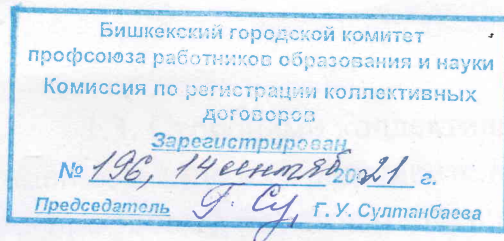 Бишкекский городской комитет
профсоюза работников образования и науки
Комиссия по регистрации коллективных
договоров
Зарегистрирован
№ 196, 14 сентяб 2021 г.
Председатель Г. У. Султанбаева